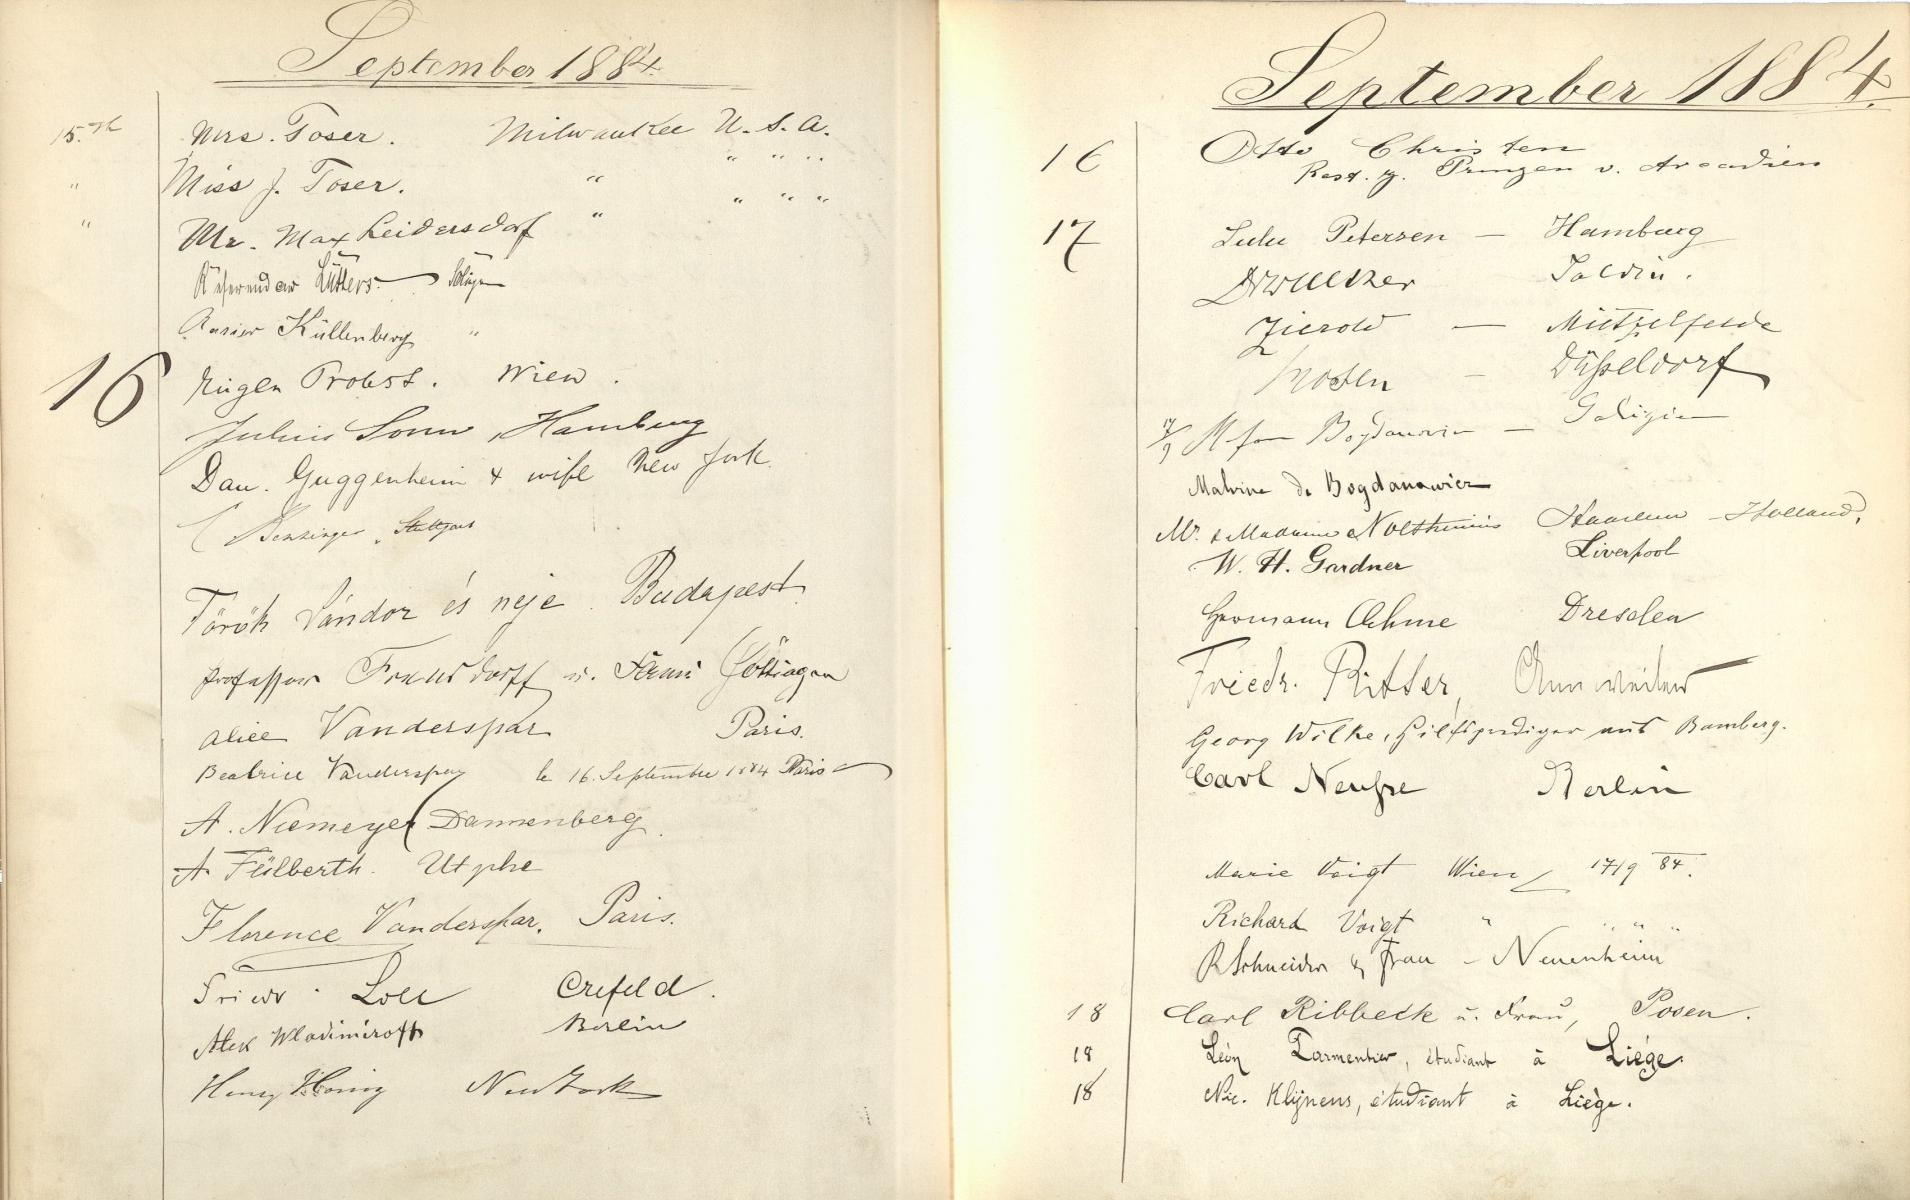 September 1884.
15.th Mrs. Toser. Milwaukee U.S.A.
" Miss J. Toser. " " " "
" Mr. Max Leidersdorf " " " "
Referendar Lütters
Küllenberg "
16 Eugen Probst. Wien.
Julius Sonn, Hamburg
Dan. Guggenheim & wife New York
Benzinger, Stuttgart
Török Sándor és neje. Budapest.
Professor Frensdorff u. Frau Göttingen
Alice Vanderspar Paris.
Beatrice Vanderspar le 16. Septembre 1884 Paris
A. Niemeyer Dannenberg.
A. Fülberth. Utphe
Florence Vanderspar. Paris.
Friedr. Loll Crefeld.
Alex Wladimiroff Berlin
Henry New York
September 1884.
16 Otto Christen
Rest. z. Prinzen v. Arcadien
17 Lulu Petersen — Hamburg
Soldin.
Zierold — Mützelfelde
— Düsseldorf
17/9 Bogdanowicz — Galizien
Malvine de Bogdanowicz
Mr. & Madame Nolthenius Haarlem - Holland.
W. H. Gardner Liverpool
Hermann Oehme Dresden
Friedr. Ritter, Annweiler
Georg Wilke, Hilfsprediger aus Bamberg.
Carl Berlin
Marie Voigt Wien 17/9 84.
Richard Voigt " " " "
R Schneider & Frau - Neuenheim
18 Carl Ribbeck u. Frau, Posen.
18 Léon Parmentier, étudiant à Liége.
18 Nic. Klijnens, étudiant à Liège.